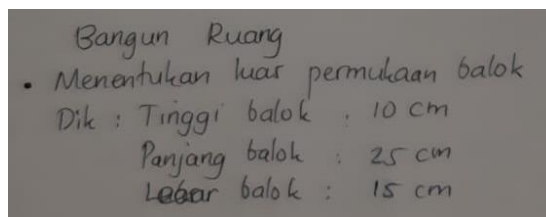 Bangun Ruang
• Menentukan luas permukaan balok
Dik : Tinggi balok : 10 cm
Panjang balok : 25 cm
Lebar balok : 15 cm